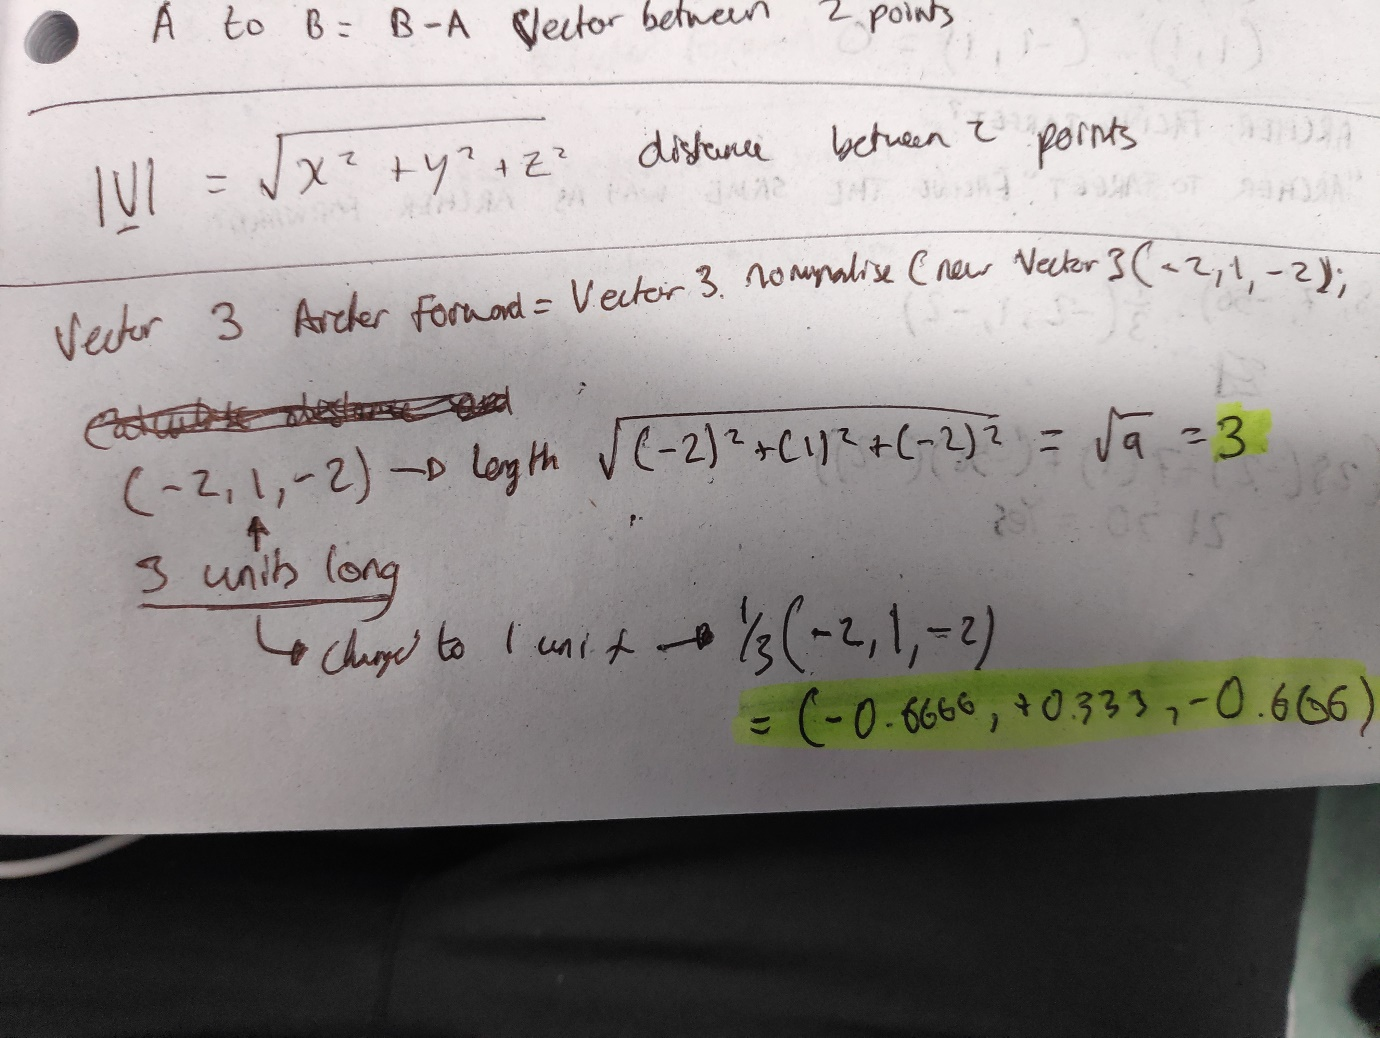 A to B = B-A Vector between 2 points
|V| = √x² + y² + z² distance between 2 points
Vector 3 Archer Forward = Vector 3. normalise (new Vector 3 (-2,1,-2);
(-2,1,-2) → length √(-2)² + (1)² + (-2)² = √9 = 3
3 units long
↳ change to 1 unit → 1/3 (-2,1,-2)
= (-0.6666, +0.333, -0.666)